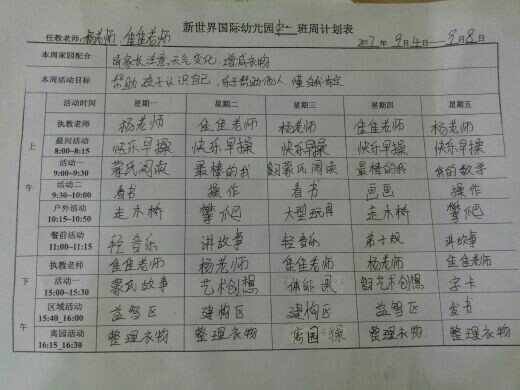 新世界国际幼儿园中一班周计划表
任教老师：杨老师 佳佳老师 2017年9月4日—9月8日
本周家园配合 请家长注意天气变化，增减衣物
本周活动目标 帮助孩子认识自己，乐于帮助他人，懂得自我肯定
活动时间 星期一 星期二 星期三 星期四 星期五
上午
执教老师 杨老师 佳佳老师 杨老师 佳佳老师 杨老师
晨间活动 8:00~8:15 快乐早操 快乐早操 快乐早操 快乐早操 快乐早操
活动一 9:00~9:30 蒙氏阅读 最棒的我 蒙氏阅读 最棒的我 我的数学
活动二 9:30~10:00 看书 操作 看书 画画 操作
户外活动 10:15~10:50 走木桥 攀爬 大型玩具 走木桥 攀爬
餐前活动 11:00~11:15 轻音乐 讲故事 轻音乐 弟子规 讲故事
下午
执教老师 佳佳老师 杨老师 佳佳老师 杨老师 佳佳老师
活动一 15:00~15:30 蒙氏故事 艺术创想 体能 艺术创想 字卡
区域活动 15:40_16:00 益智区 建构区 建构区 益智区 看书
离园活动 16:15_16:30 整理衣物 整理衣物 离园操 整理衣物 整理衣物